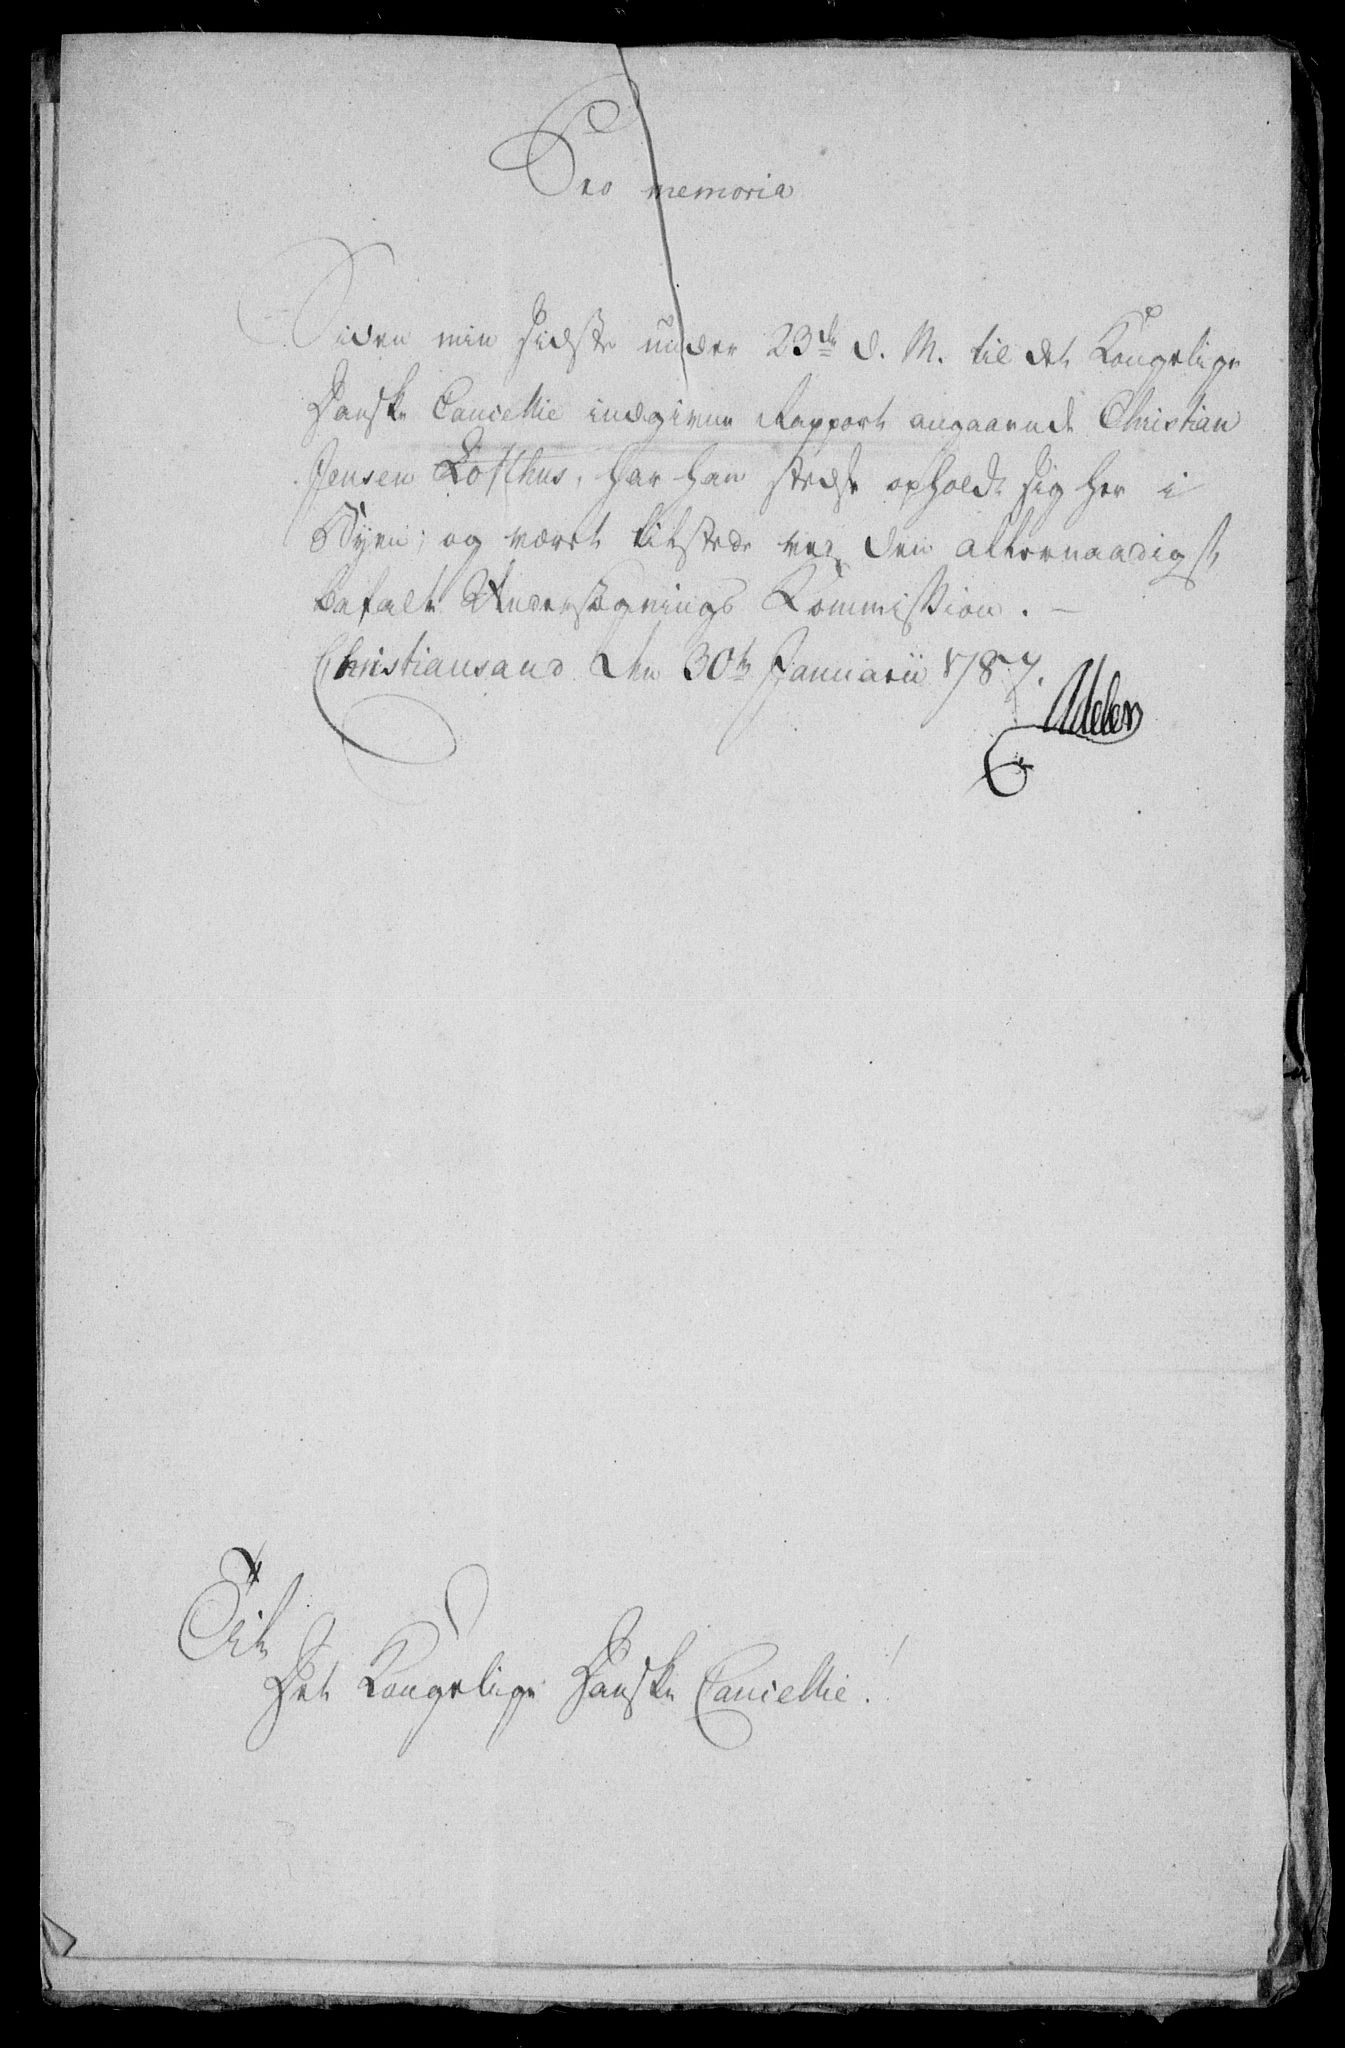 Pro memoria
Siden min sidste under 23de d. M. til det Kongelige
Danske Cancellie indgivne Rapport angaaende Christian
Jensen Lofthus, har han stedse opholdt sig her i
Byen; og været tilstede ved den allernaadigst
befalte Undersøgnings Kommission. –
Christiansand den 30te Januarii 1787.
Adeler
Til
Det Kongelige Danske Cancellie!